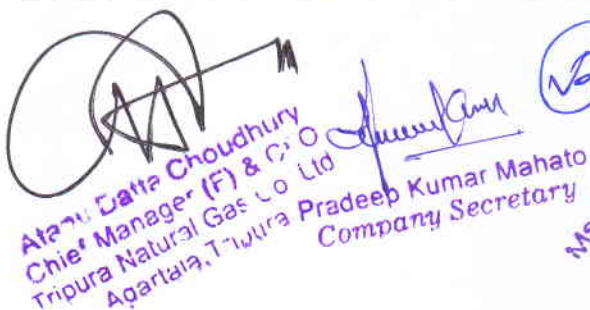 Atanu Datta Choudhury
Chief Manager (F) & CFO
Tripura Natural Gas Co Ltd
Agartala, Tripura
Pradeep Kumar Mahato
Company Secretary